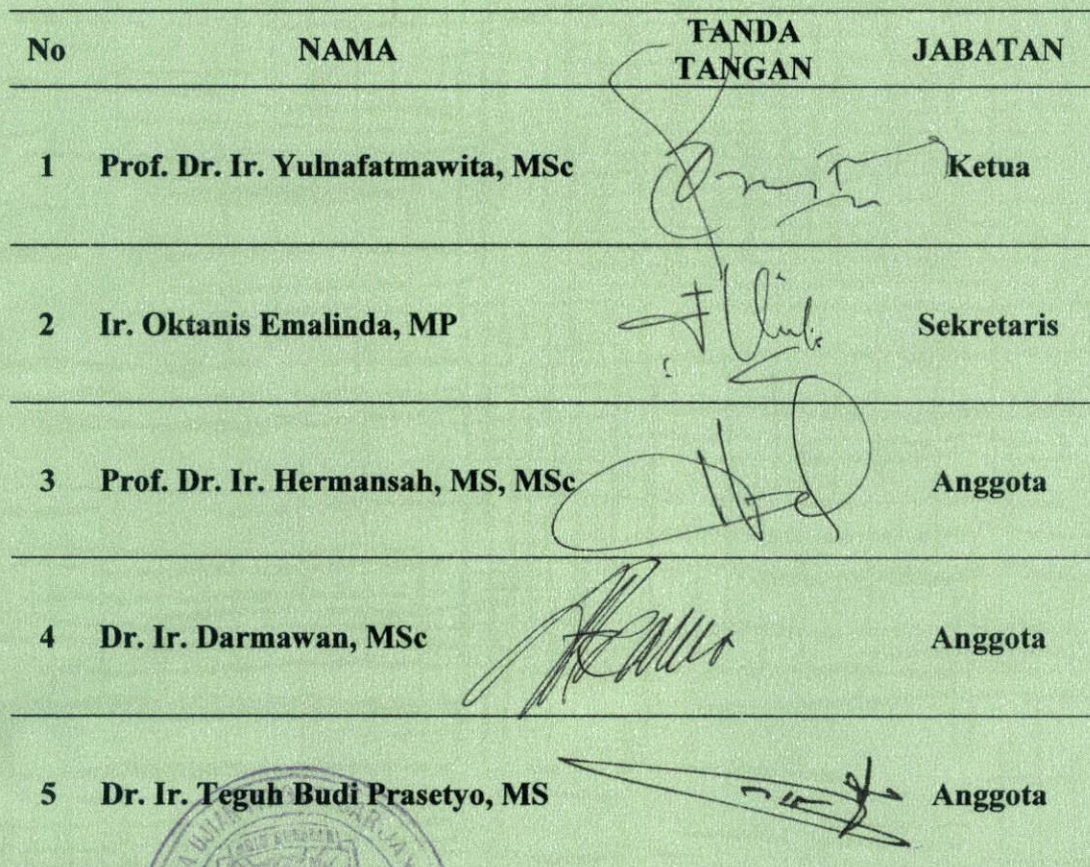 No NAMA TANDA TANGAN JABATAN
1 Prof. Dr. Ir. Yulnafatmawita, MSc Ketua
2 Ir. Oktanis Emalinda, MP Sekretaris
3 Prof. Dr. Ir. Hermansah, MS, MSc Anggota
4 Dr. Ir. Darmawan, MSc Anggota
5 Dr. Ir. Teguh Budi Prasetyo, MS Anggota
UJIAN